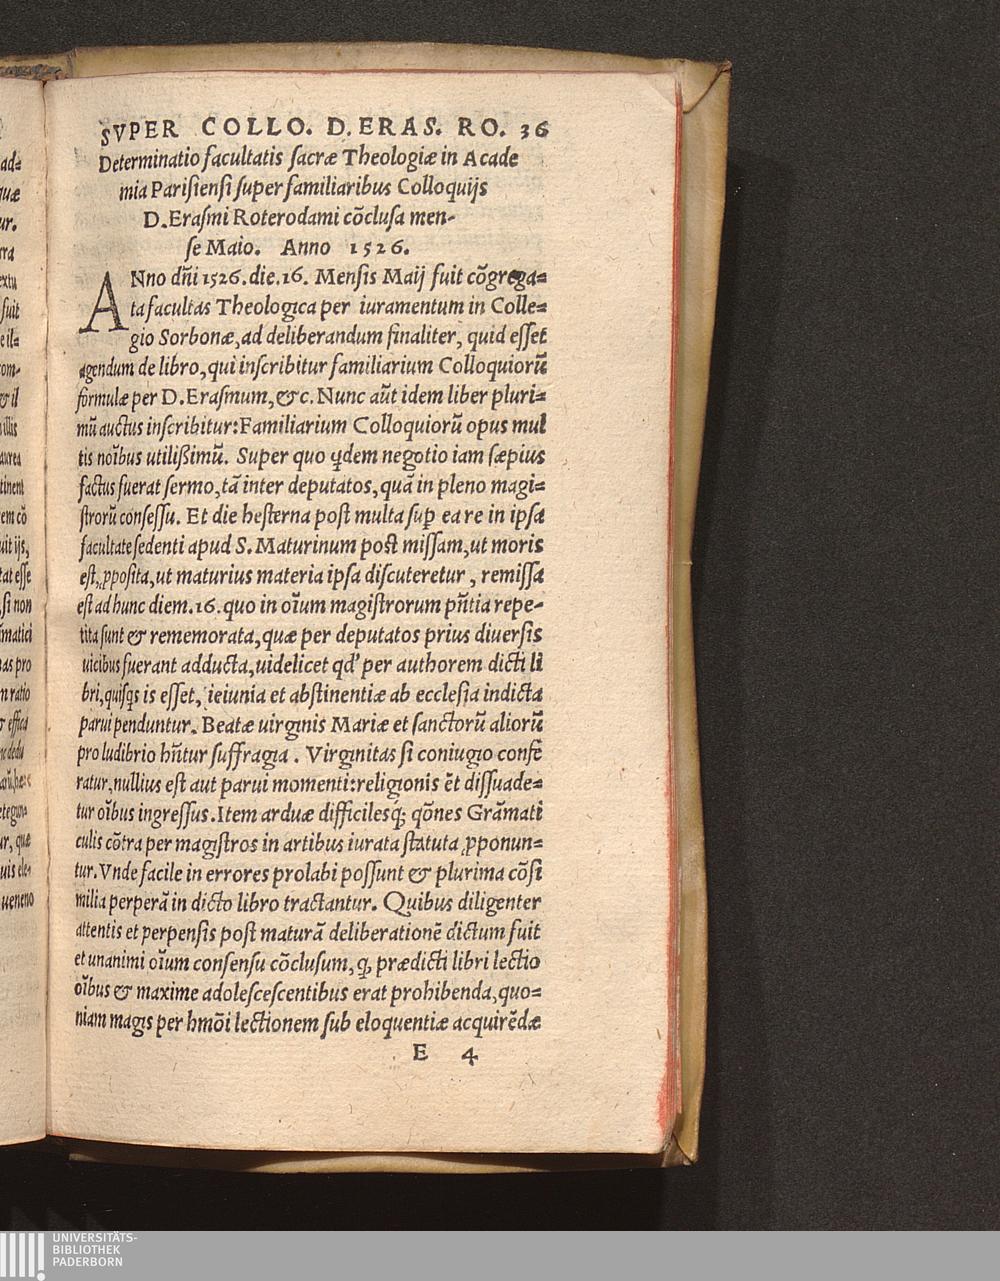 SVPER COLLO. D. ERAS. RO. 36
Determinatio facultatis sacræ Theologiæ in Acade
mia Parisiensi super familiaribus Colloquijs
D. Erasmi Roterodami cõclusa men-
se Maio. Anno 1526.
ANno dñi 1526. die. 16. Mensis Maij fuit cõgrega=
ta facultas Theologica per iuramentum in Colle=
gio Sorbonæ, ad deliberandum finaliter, quid esset
agendum de libro, qui inscribitur familiarium Colloquiorũ
formulæ per D. Erasmum, &c. Nunc aũt idem liber pluri=
mũ auctus inscribitur: Familiarium Colloquiorũ opus mul
tis noĩbus utilißimũ. Super quo qdem negotio iam sæpius
factus fuerat sermo, tã inter deputatos, quã in pleno magi=
strorũ consessu. Et die hesterna post multa sup ea re in ipsa
facultate sedenti apud S. Maturinum post missam, ut moris
est, ꝓposita, ut maturius materia ipsa discuteretur, remissa
est ad hunc diem. 16. quo in oĩum magistrorum pñtia repe-
tita sunt & rememorata, quæ per deputatos prius diuersis
uicibus fuerant adducta, uidelicet qd' per authorem dicti li
bri, quisqs is esset, ieiunia et abstinentiæ ab ecclesia indicta
parui penduntur. Beatæ uirginis Mariæ et sanctorũ aliorũ
pro ludibrio hñtur suffragia. Virginitas si coniugio confe
ratur, nullius est aut parui momenti: religionis ẽt dissuade=
tur oĩbus ingressus. Item arduæ difficilesq́; qõnes Grãmati
culis cõtra per magistros in artibus iurata statuta ꝓponun=
tur. Vnde facile in errores prolabi possunt & plurima cõsi
milia perperã in dicto libro tractantur. Quibus diligenter
attentis et perpensis post maturã deliberationẽ dictum fuit
et unanimi oĩum consensu cõclusum, ꝙ prædicti libri lectio
oĩbus & maxime adolescescentibus erat prohibenda, quo=
niam magis per hmõi lectionem sub eloquentiæ acquirẽdæ
E 4
UNIVERSITÄTS-
BIBLIOTHEK
PADERBORN